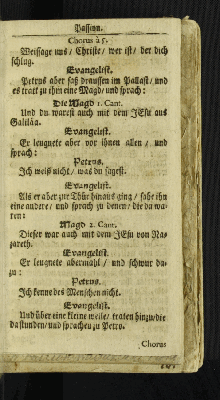 Passion.
Chorus à 5.
Weissage uns / Christe / wer ist / der dich
schlug.
Evangelist.
Petrus aber saß draussen im Pallast / und
es tratt zu ihm eine Magd / und sprach:
Die Magd 1. Cant.
Und du warest auch mit dem JEsu aus
Galiläa.
Evangelist.
Er leugnete aber vor ihnen allen / und
sprach:
Petrus.
Ich weiß nicht / was du sagest.
Evangelist.
Als er aber zur Thür hinaus ging / sahe ihn
eine andere / und sprach zu denen / die da wa-
ren:
Magd 2. Cant.
Dieser war auch mit dem JEsu von Na-
zareth.
Evangelist.
Er leugnete abermahl / und schwur da-
zu:
Petrus.
Ich kenne des Menschen nicht.
Evangelist.
Und über eine kleine weile / traten hinzu / die
da stunden / und sprachen zu Petro.
Chorus